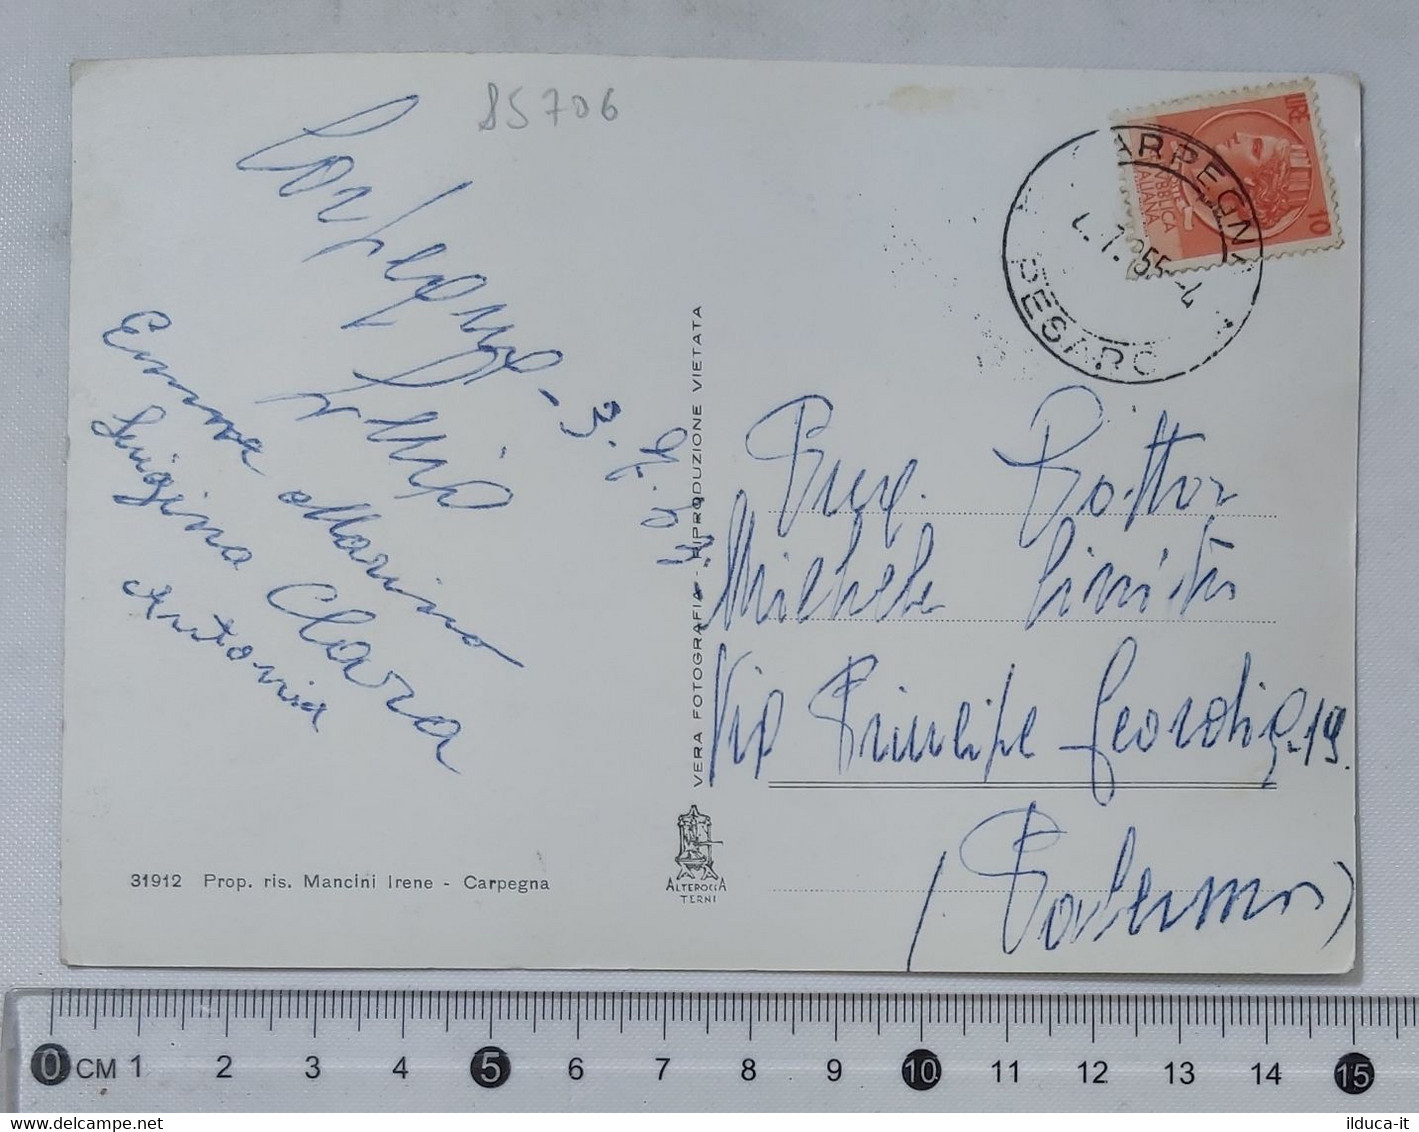 85706
Carpegna - 3.7.55
Emma Marino
Luigina Clara
Antonia
31912 Prop. ris. Mancini Irene - Carpegna
VERA FOTOGRAFIA - RIPRODUZIONE VIETATA
ALTEROCCA
TERNI
LIRE 10
REPUBBLICA
ITALIANA
CARPEGNA
4.7.955
PESARO
Dottor
Michele
Via Principe 19.
(Palermo)
0 CM 1 2 3 4 5 6 7 8 9 10 11 12 13 14 15
ilduca-it